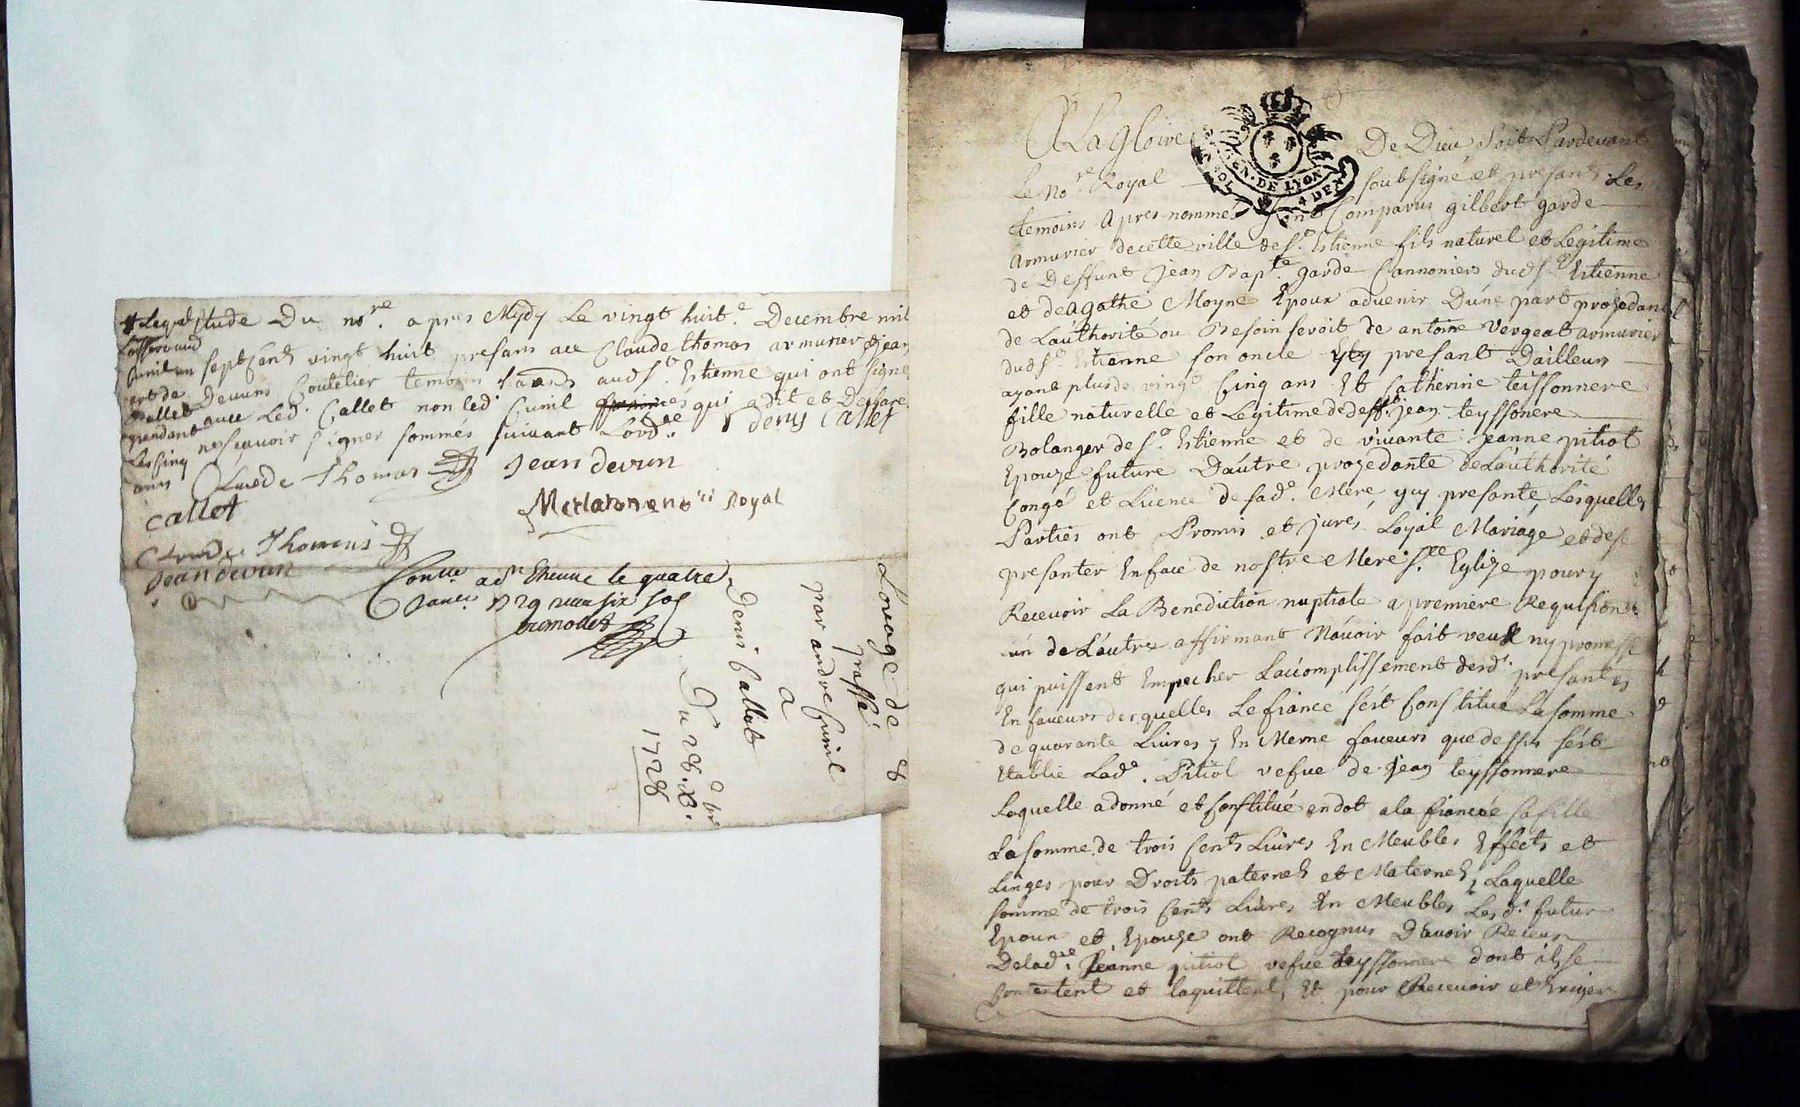 Lequel
Laffermaud
Cunil un
et de
Mallet
ependant
Les sinq
ans
etude Du no.re apres Mydy Le vingt huit.e Decembre mil
sept Cents vingt huit presans ace Claude thomas armurier & Jean
Devuns Coutelier temoin aud S.t Estienne qui ont signé
avec Led. Callet non led. Cunil qui a dit et Declaré
ne scavoir signer sommés suivant Lord.ce denis Callet
Claude Thomas Jean devun
callet no.re Royal
Claude Thomas
Jean devun
Con.lle a S.t Etienne le quatre
Janvi. 1729 receu six sols
Louage de 8
passé
par andre Cunil
a
Denis Callet
Du 28. Xbre
1728
A La gloire De Dieu soit Pardevant
Le No.re Royal soubsigné et presants Les
temoins Apres nommé sont Comparus gilbert garde
Armurier de cette ville de S.t Estienne fils naturel et Légitime
de Deffunt Jean Bap.te garde Cannonier dud S.t Estienne
et de Agathe Moyne Epoux advenir Dune part prozedant
de L'authorité ou Besoin seroit de antoine Vergeat armurier
dud S.t Estienne son oncle icy presant Dailleurs
ayant plus de vingt Cinq ans Et Catherine teissonnere
fille naturelle et Légitime de deff.t jean teyssonere
Bolanger de S.t Estienne et de vivante Jeanne pitiot
Epouze future D'autre prozédante de L'authorité
Congé et Licence de sad.e Mere, icy presante, Lesquelles
Parties ont Promis et jurés Loyal Mariage et de se
presanter En face de nostre Mere S.te Eglize pour y
Recevoir La Benediction nuptiale a premiere Requisition
un de Lautre affirmant N'avoir fait veux ny promesse
qui puissent Empecher Lacomplissement desd. presantes
En faveurs desquelles Le fiancé sest Constitué La somme
de quarante Livres, En Meme faveurs que dessus sest
Etablie Lad.e Pitiot vefue de jean teyssonnere
Laquelle a donné et constitué en dot a la fiancée sa fille
La somme de trois Cents Livres En Meubles Effects et
Linges pour Droits paternels et Maternels, Laquelle
somme de trois Cents Livres En Meubles Lesd. futur
Epoux et Epouze ont Recognus D'avoir Receus
De lad.e Jeanne pitiot vefue teyssonnere dont ils se
Contentent et laquittent, Et pour Recevoir et Exiger
DE LYON